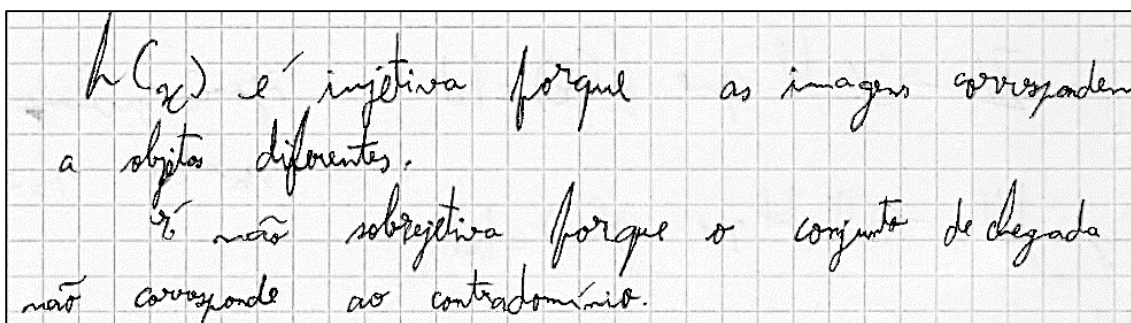 h(x) é injetiva porque as imagens correspondem
a objetos diferentes.
É não sobrejetiva porque o conjunto de chegada
não corresponde ao contradomínio.